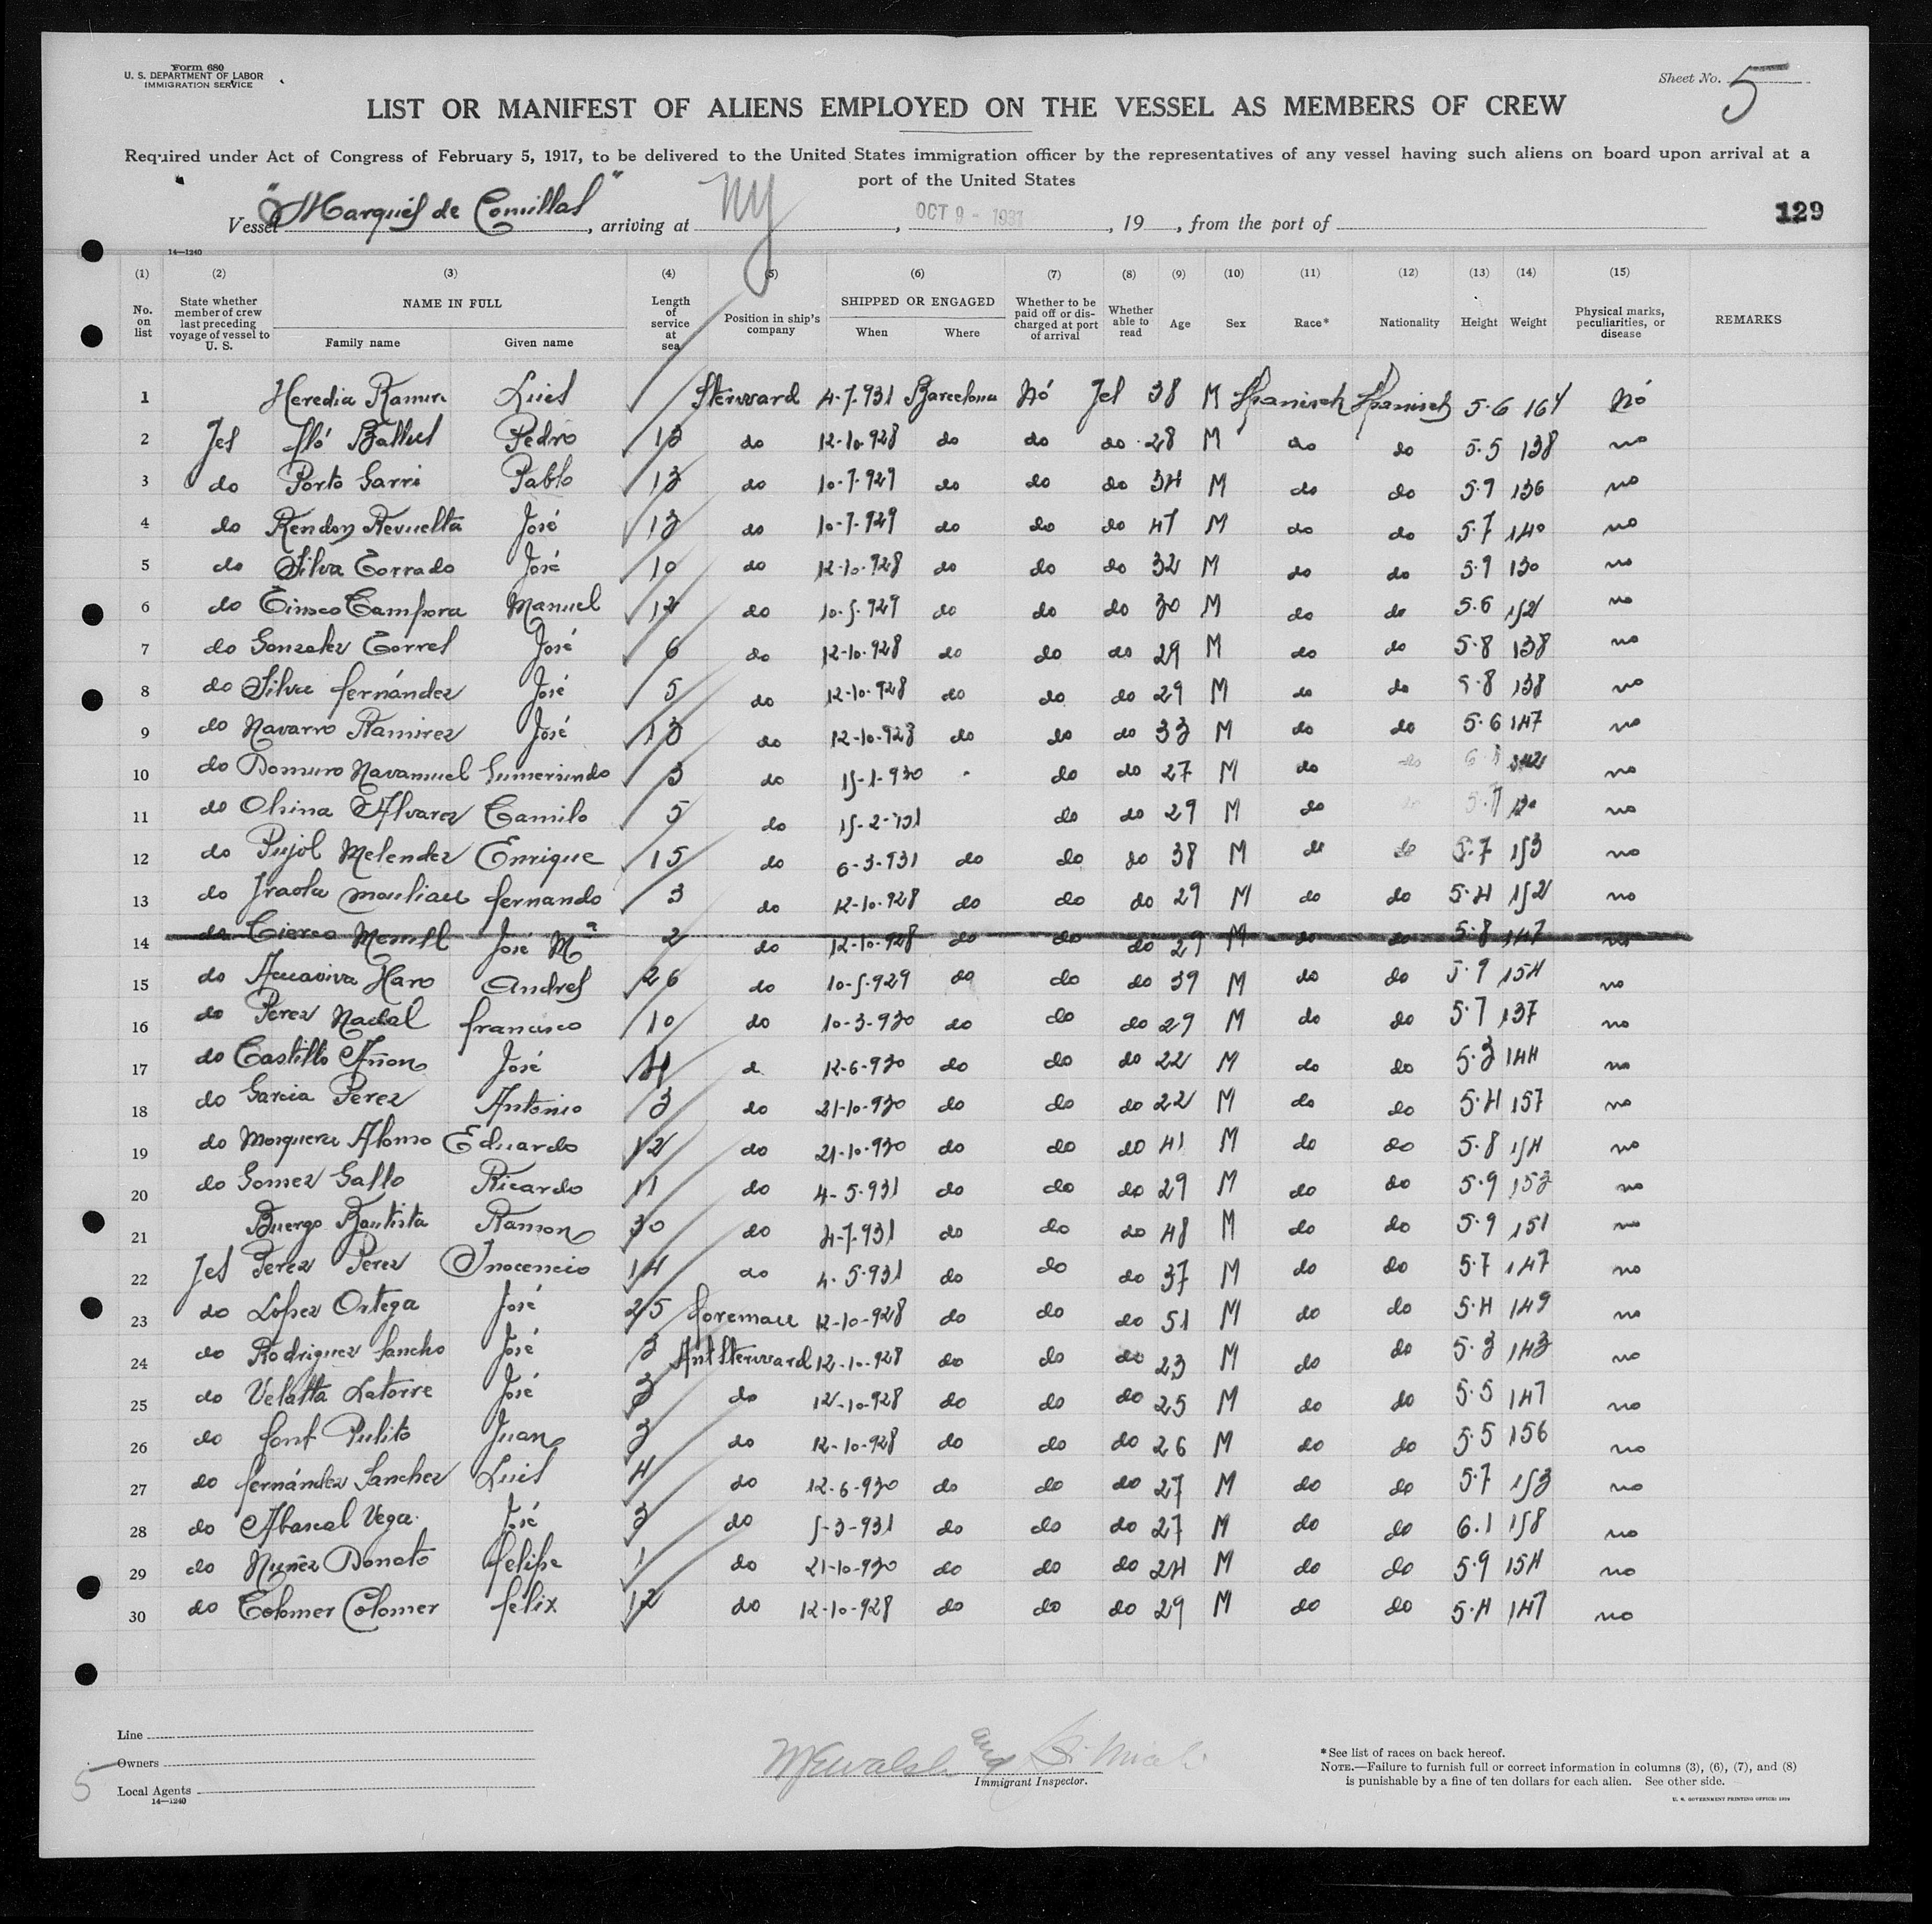 Form 680
U. S. DEPARTMENT OF LABOR
IMMIGRATION SERVICE
Sheet No. 5
LIST OR MANIFEST OF ALIENS EMPLOYED ON THE VESSEL AS MEMBERS OF CREW
Required under Act of Congress of February 5, 1917, to be delivered to the United States immigration officer by the representatives of any vessel having such aliens on board upon arrival at a
port of the United States
Vessel "Marqués de Comillas", arriving at NY, OCT 9 - 1931, 19 , from the port of
129
14—1240
(1) (2) (3) (4) (5) (6) (7) (8) (9) (10) (11) (12) (13) (14) (15)
No. on list State whether member of crew last preceding voyage of vessel to U. S. NAME IN FULL Family name Given name Length of service at sea Position in ship's company SHIPPED OR ENGAGED When Where Whether to be paid off or discharged at port of arrival Whether able to read Age Sex Race* Nationality Height Weight Physical marks, peculiarities, or disease REMARKS
1 Heredia Ramir Luis Stewward 4-7-931 Barcelona Nó Jes 38 M Spanisch Spanisch 5.6 164 Nó
2 Jes Pedro 13 do 12-10-928 do do do 28 M do do 5.5 138 no
3 do Porto Garri Pablo 13 do 10-7-929 do do do 34 M do do 5.9 136 no
4 do Rendon Revuelta José 13 do 10-7-929 do do do 47 M do do 5.7 140 no
5 do Silva Corrado José 10 do 12-10-928 do do do 32 M do do 5.9 130 no
6 do Campora Manuel 12 do 10-5-929 do do do 30 M do do 5.6 152 no
7 do Gonzalez Corres José 6 do 12-10-928 do do do 29 M do do 5.8 138 no
8 do Silva fernández José 5 do 12-10-928 do do do 29 M do do 5.8 138 no
9 do Navarro Ramirez José 13 do 12-10-928 do do do 33 M do do 5.6 147 no
10 do Domuro Navamuel Gumersindo 3 do 15-1-930 do do 27 M do do no
11 do Alvarez Camilo 5 do 15-2-931 do do 29 M do do no
12 do Pujol Melendez Enrique 15 do 6-3-931 do do do 38 M do do 5.7 153 no
13 do Iraola fernando 3 do 12-10-928 do do do 29 M do do 5.4 152 no
14 do José Mª 2 do 12-10-928 do do do 29 M do do 5.8 147 no
15 do Acuaviva Haro Andres 26 do 10-5-929 do do do 39 M do do 5.9 154 no
16 do Perez Nadal francisco 10 do 10-3-930 do do do 29 M do do 5.7 137 no
17 do Castillo Añon José 4 d 12-6-930 do do do 22 M do do 5.3 144 no
18 do Garcia Perez Antonio 3 do 21-10-930 do do do 22 M do do 5.4 157 no
19 do Mosquera Alonso Eduardo 12 do 21-10-930 do do do 41 M do do 5.8 154 no
20 do Gomez Gallo Ricardo 11 do 4-5-931 do do do 29 M do do 5.9 153 no
21 Buergo Bautista Ramon 30 do 4-7-931 do do do 48 M do do 5.9 151 no
22 Jes Perez Perez Inocencio 14 do 4-5-931 do do do 37 M do do 5.7 147 no
23 do Lopez Ortega José 25 foreman 12-10-928 do do do 51 M do do 5.4 149 no
24 do Rodriguez Sancho José 3 Ant Stewward 12-10-928 do do do 23 M do do 5.3 143 no
25 do Velatta Latorre José 3 do 12-10-928 do do do 25 M do do 5.5 147 no
26 do font Pulito Juan 3 do 12-10-928 do do do 26 M do do 5.5 156 no
27 do fernández Sanchez Luis 4 do 12-6-930 do do do 27 M do do 5.7 153 no
28 do Abascal Vega José 3 do 5-3-931 do do do 27 M do do 6.1 158 no
29 do Nuñez Donato felipe 1 do 21-10-930 do do do 24 M do do 5.9 154 no
30 do Colomer Colomer felix 12 do 12-10-928 do do do 29 M do do 5.4 147 no
Line
Owners
Local Agents
14—1240
5
and
Immigrant Inspector.
*See list of races on back hereof.
NOTE.—Failure to furnish full or correct information in columns (3), (6), (7), and (8)
is punishable by a fine of ten dollars for each alien. See other side.